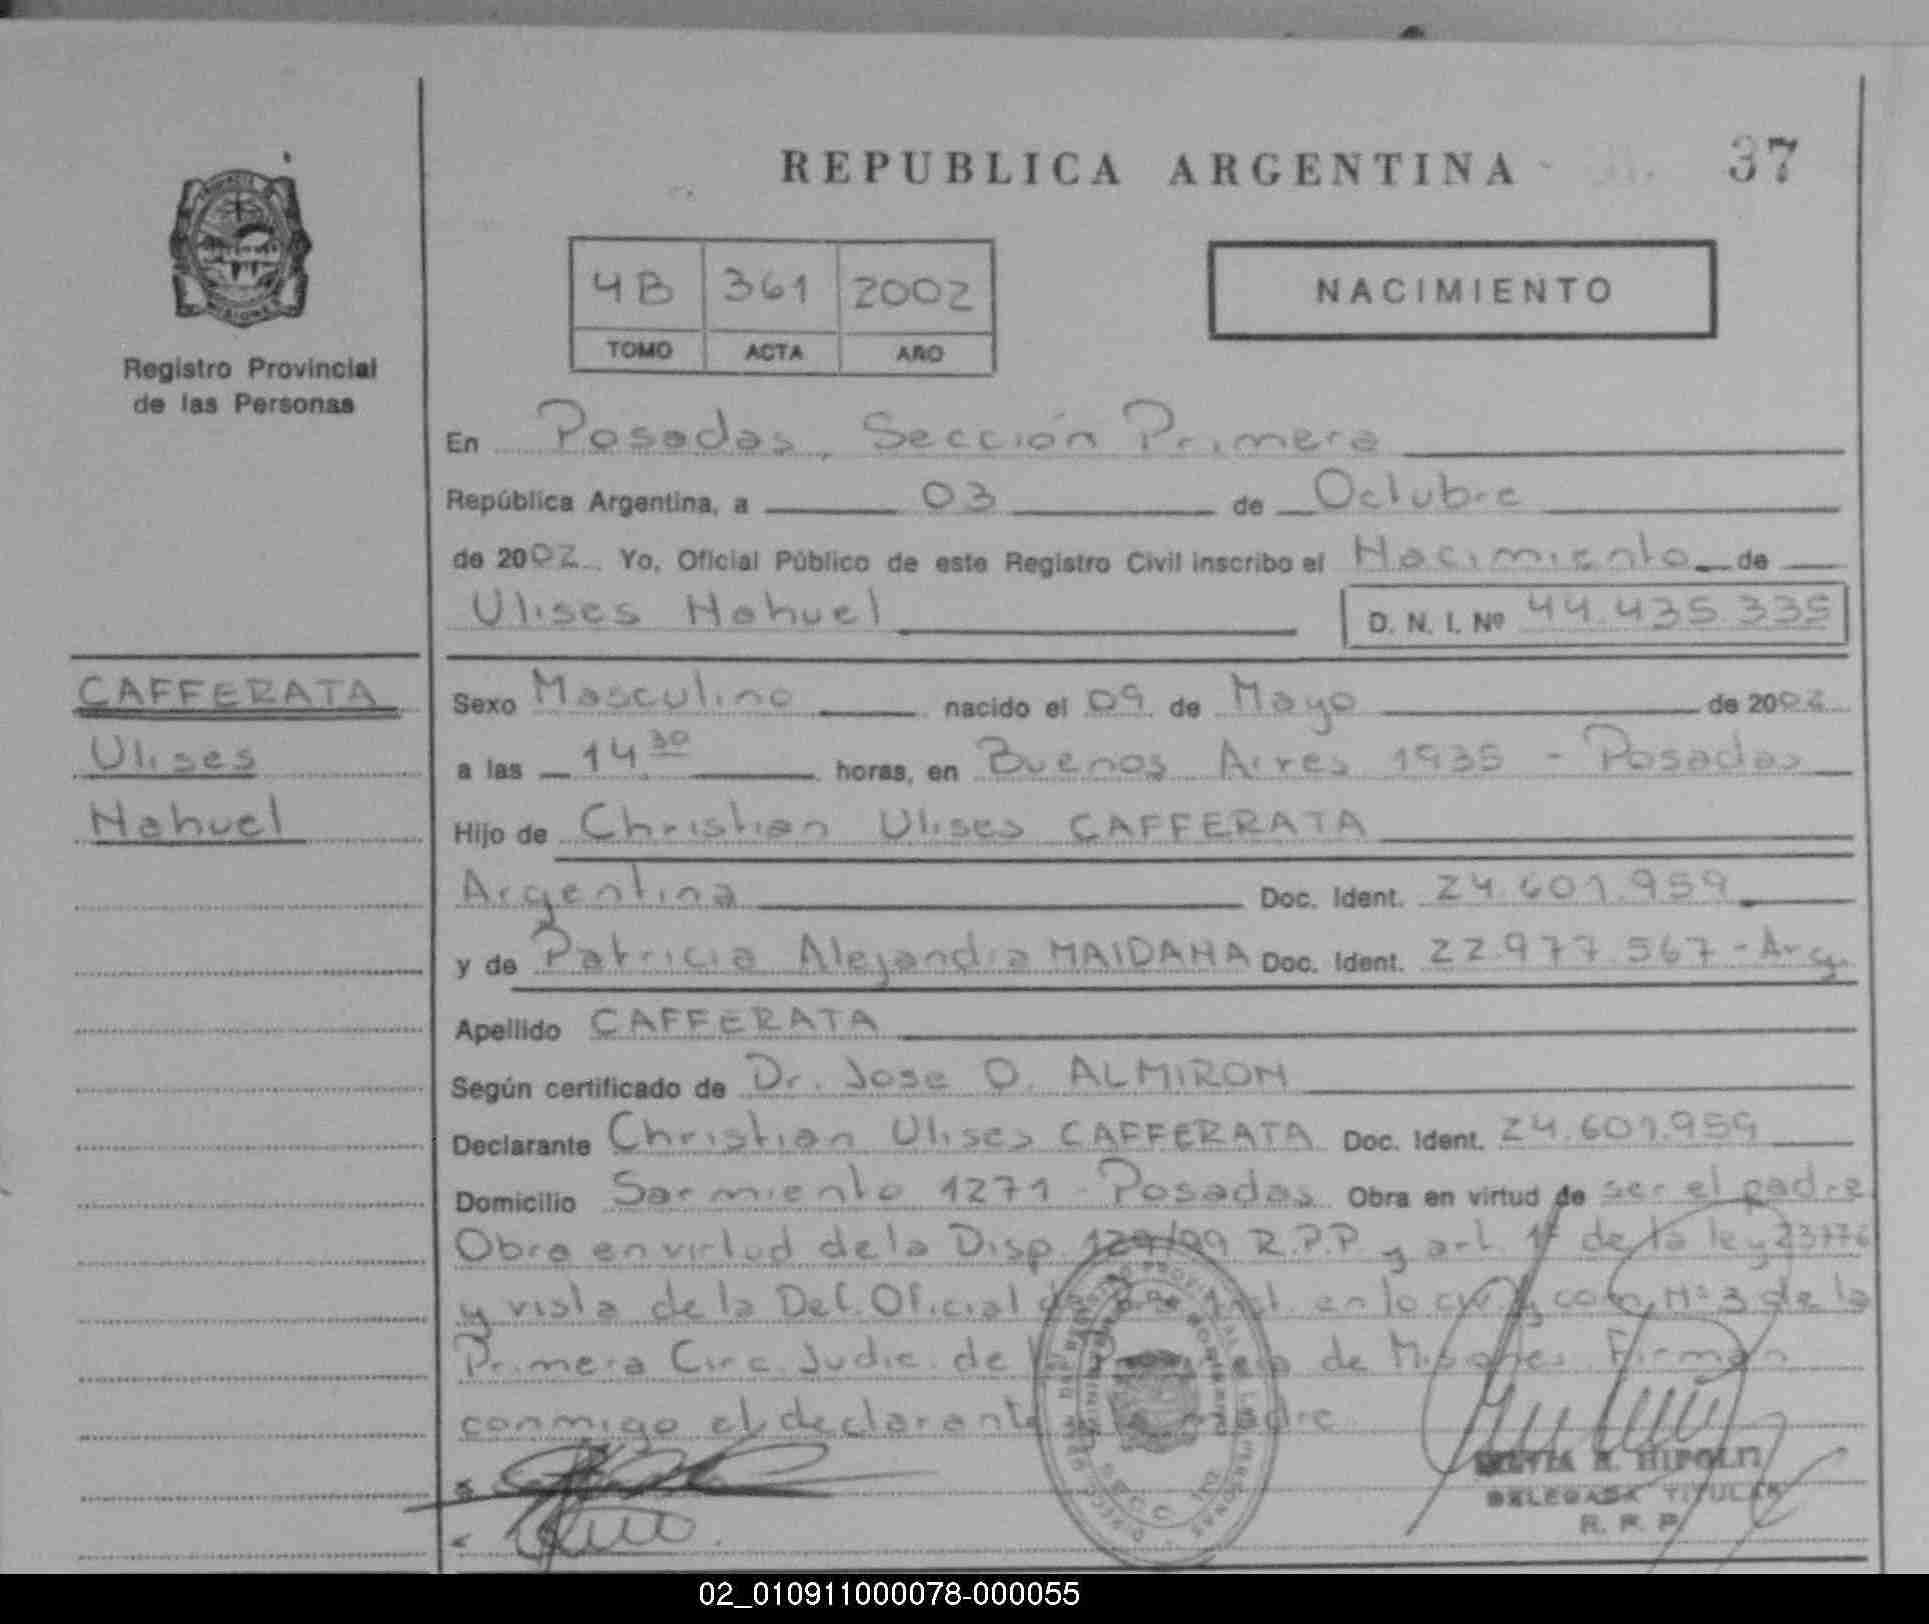 REPUBLICA ARGENTINA
37
4B 361 2002
TOMO ACTA AÑO
NACIMIENTO
Registro Provincial
de las Personas
En Posadas, Sección Primera
República Argentina, a 03 de Octubre
de 2002 Yo, Oficial Público de este Registro Civil inscribo el Nacimiento de
Ulises Nahuel D. N. I. Nº 44.435.335
CAFFERATA
Ulises
Nahuel
Sexo Masculino nacido el 09 de Mayo de 2002
a las 14 30 horas, en Buenos Aires 1935 - Posadas
Hijo de Christian Ulises CAFFERATA
Argentina Doc. Ident. 24.601.959
y de Patricia Alejandra MAIDANA Doc. Ident. 22.977.567 - Arg.
Apellido CAFFERATA
Según certificado de Dr. Jose O. ALMIRON
Declarante Christian Ulises CAFFERATA Doc. Ident. 24.601.959
Domicilio Sarmiento 1271 - Posadas Obra en virtud de ser el padre
Obra en virtud de la Disp. 129/99 R.P.P. y art. 1º de la ley 23776
y vista de la Def. Oficial de en lo civ. y com. Nº 3 de la
Primera Circ. Judic. de la Provincia de Misiones. Firman
conmigo el declarante madre
HIPOLITI
DELEGADA TITULAR
R. P. P.
02_010911000078-000055